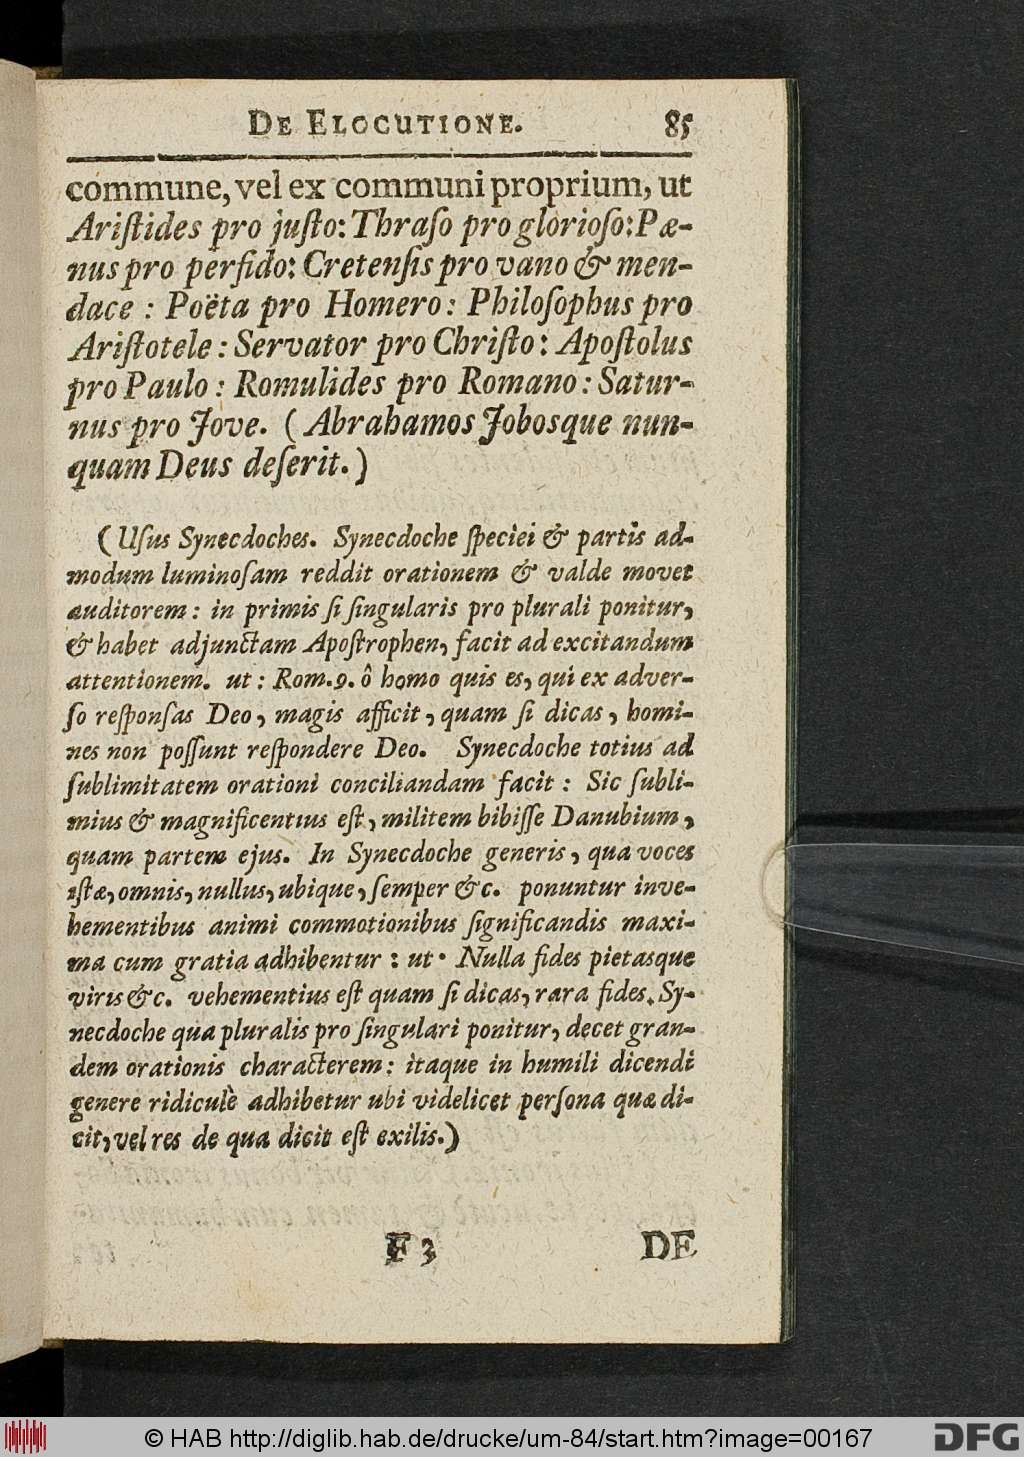 DE ELOCUTIONE. 85
commune, vel ex communi proprium, ut
Ariſtides pro juſto: Thraſo pro glorioſo: Pæ-
nus pro perfido: Cretenſis pro vano & men-
dace : Poëta pro Homero: Philoſophus pro
Ariſtotele: Servator pro Chriſto: Apoſtolus
pro Paulo: Romulides pro Romano: Satur-
nus pro Jove. (Abrahamos Jobosque nun-
quam Deus deſerit.)
(Uſus Synecdoches. Synecdoche ſpeciei & partis ad-
modum luminoſam reddit orationem & valde movet
auditorem: in primis ſi ſingularis pro plurali ponitur,
& habet adjunctam Apoſtrophen, facit ad excitandum
attentionem. ut: Rom.9. ô homo quis es, qui ex adver-
ſo reſponſas Deo, magis afficit, quam ſi dicas, homi-
nes non poſſunt reſpondere Deo. Synecdoche totius ad
ſublimitatem orationi conciliandam facit: Sic ſubli-
mius & magnificentius eſt, militem bibiſſe Danubium,
quam partem ejus. In Synecdoche generis, qua voces
iſtæ, omnis, nullus, ubique, ſemper &c. ponuntur inve-
hementibus animi commotionibus ſignificandis maxi-
ma cum gratia adhibentur: ut. Nulla fides pietasque
viris &c. vehementius eſt quam ſi dicas, rara fides. Sy-
necdoche qua pluralis pro ſingulari ponitur, decet gran-
dem orationis characterem: itaque in humili dicendi
genere ridiculè adhibetur ubi videlicet perſona quæ di-
cit, vel res de qua dicit eſt exilis.)
F 3 DE
© HAB http://diglib.hab.de/drucke/um-84/start.htm?image=00167 DFG